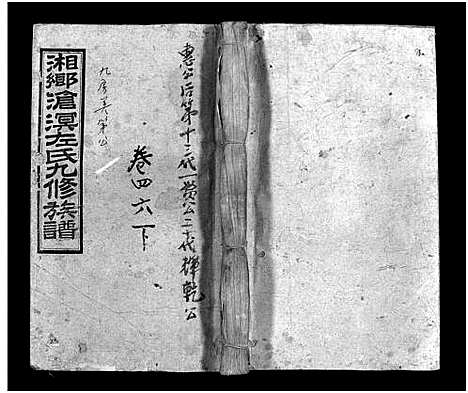 惠公后第十三代一贵公二十代輝乾公
卷四六下
九房
湘鄉滄溟左氏九修族譜